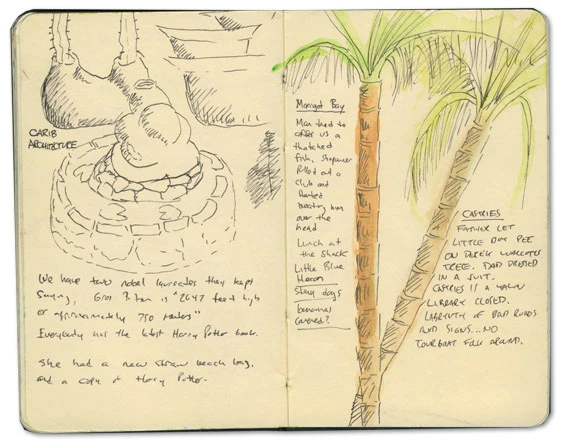 CARIB
ARCHITECTURE
We have two nobel laureates they kept
saying, Gros Piton is "2647 feet high
or approximately 750 meters"
Everybody has the latest Harry Potter book.
She had a new straw beach bag,
and a copy of Harry Potter.
Marigot Bay
Man tried to
offer us a
thatched
fish, shopowner
pulled out a
club and
started
beating him
over the
head
Lunch at
the Shack
Little Blue
Heron
Stray dogs
bananas
covered?
CASTRIES
FATHER LET
LITTLE BOY PEE
ON DEREK WALCOTT'S
TREE. DAD DRESSED
IN A SUIT.
CASTRIES IS A
LIBRARY CLOSED.
LABYRINTH OF BAD ROADS
AND SIGNS... NO
TOURBOAT FOLK AROUND.